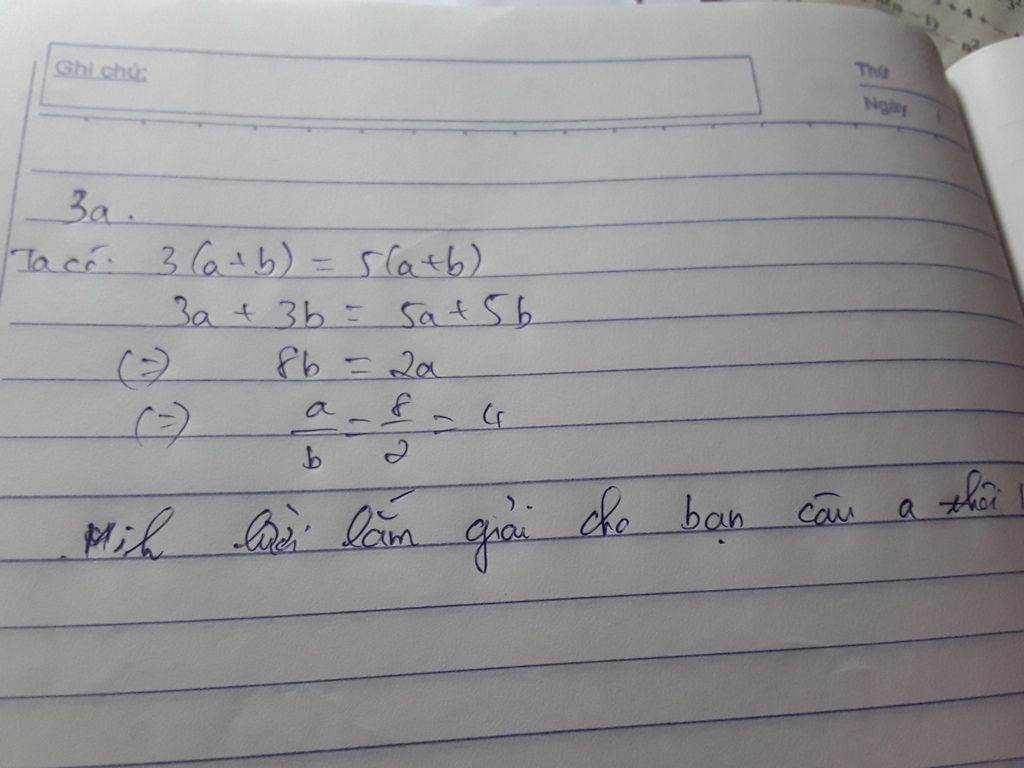 Ghi chú:
Thứ
Ngày
3a.
Ta có: 3(a+b) = 5(a+b)
3a + 3b = 5a + 5b
(=) 8b = 2a
(=) a/b = 8/2 = 4
Mih lười lắm giải cho bạn câu a thôi